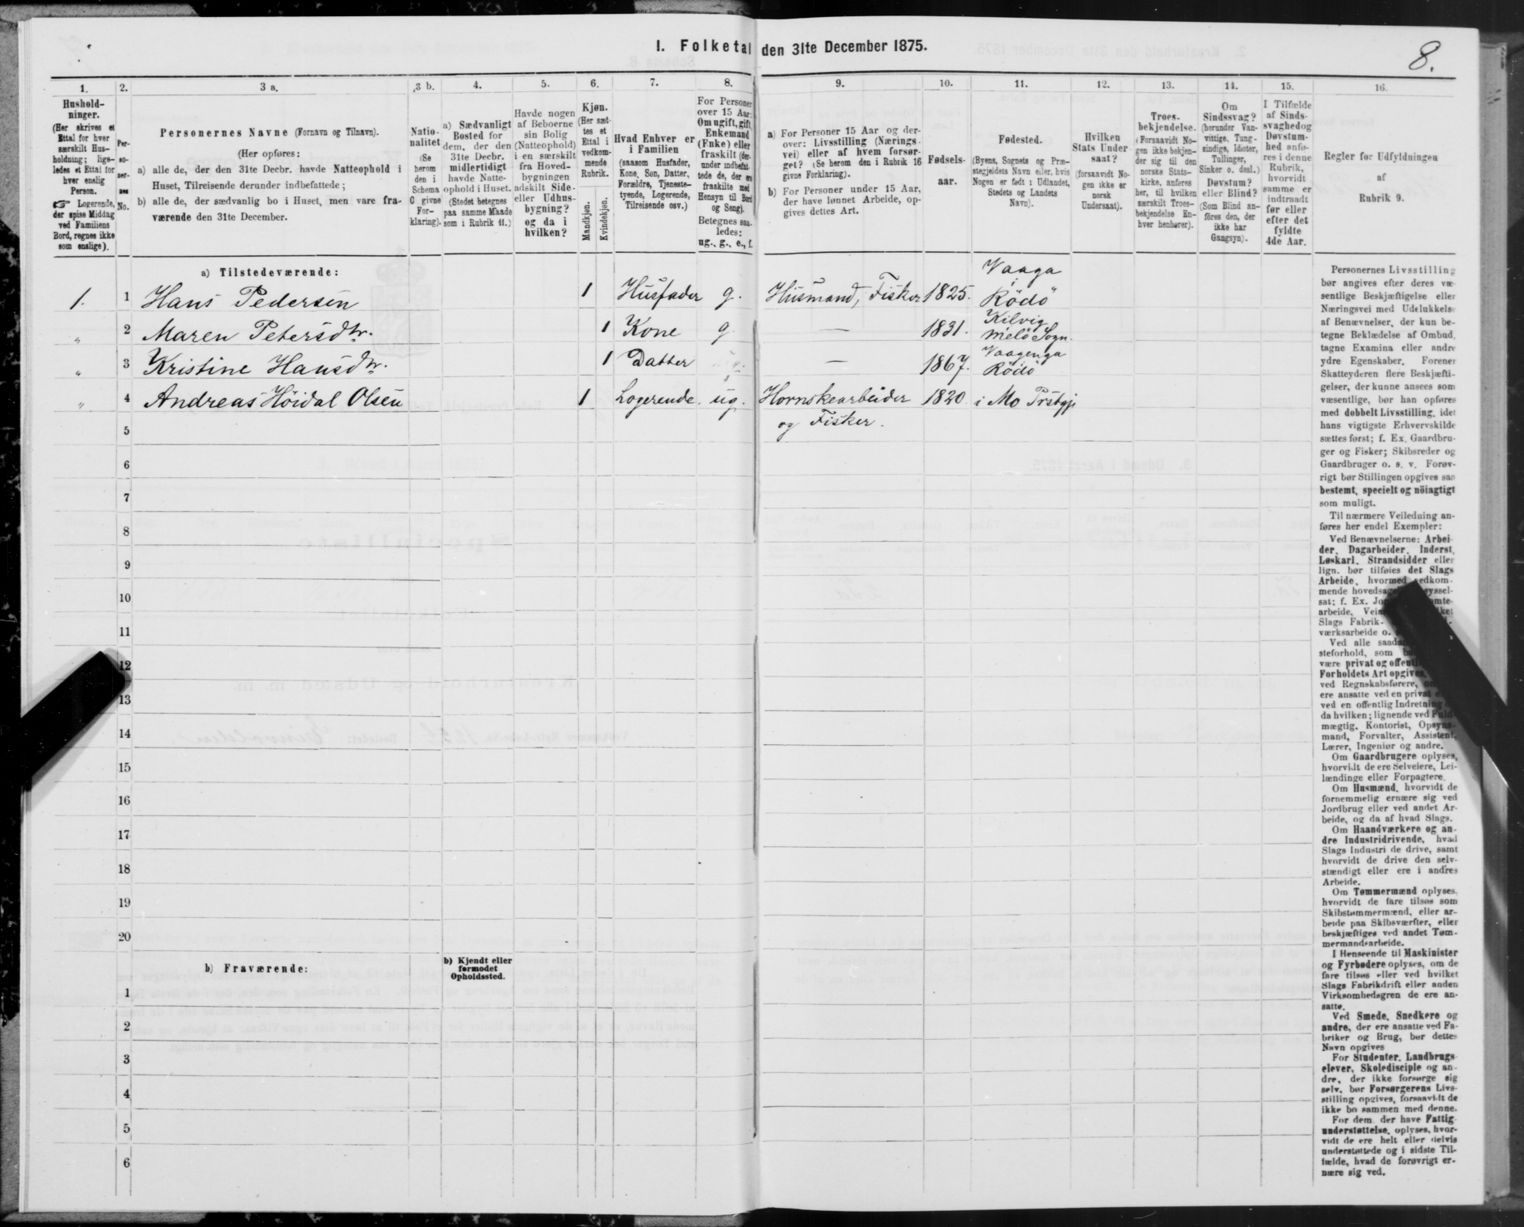 I. Folketal den 31te December 1875.
8.
1. 2. 3 a. 3 b. 4. 5. 6. 7. 8. 9. 10. 11. 12. 13. 14. 15. 16.
Hushold-
ninger.
(Her skrives et
Ettal for hver
særskilt Hus-
holdning; lige-
ledes et Ettal for
hver enslig
Person.
☞ Logerende,
der spise Middag
ved Familiens
Bord, regnes ikke
som enslige).
Per-
so-
ner-
nes
No.
Personernes Navne (Fornavn og Tilnavn).
(Her opføres:
a) alle de, der den 31te Decbr. havde Natteophold i
Huset, Tilreisende derunder indbefattede;
b) alle de, der sædvanlig bo i Huset, men vare fra-
værende den 31te December.
Natio-
nalitet
(Se
herom
den i
Schema
C givne
For-
klaring).
a) Sædvanligt
Bosted for
dem, der den
31te Decbr.
midlertidigt
havde Natte-
ophold i Huset.
(Stedet betegnes
paa samme Maade
som i Rubrik 11.)
Havde nogen
af Beboerne
sin Bolig
(Natteophold)
i en særskilt
fra Hoved-
bygningen
adskilt Side-
eller Udhus-
bygning?
og da i
hvilken?
Kjøn.
(Her sæt-
tes et
Ettal i
vedkom-
mende
Rubrik.
Mandkjøn.
Kvindekjøn.
Hvad Enhver er
i Familien
(saasom Husfader,
Kone, Søn, Datter,
Forældre, Tjeneste-
tyende, Logerende,
Tilreisende osv.)
For Personer
over 15 Aar:
Om ugift, gift,
Enkemand
(Enke) eller
fraskilt (der-
under indbefat-
tede de, der er
fraskilte med
Hensyn til Bord
og Seng).
Betegnes saa-
ledes:
ug., g., e., f.
a) For Personer 15 Aar og der-
over: Livsstilling (Nærings-
vei) eller af hvem forsør-
get? (Se herom den i Rubrik 16
givne Forklaring).
b) For Personer under 15 Aar,
der have lønnet Arbeide, op-
gives dettes Art.
Fødsels-
aar.
Fødested.
(Byens, Sognets og Præ-
stegjeldets Navn eller, hvis
Nogen er født i Udlandet,
Stedets og Landets
Navn).
Hvilken
Stats Under-
saat?
(forsaavidt No-
gen ikke er
norsk
Undersaat).
Troes-
bekjendelse.
(Forsaavidt No-
gen ikke bekjen-
der sig til den
norske Stats-
kirke, anføres
her, til hvilken
særskilt Troes-
bekjendelse En-
hver henhører).
Om
Sindssvag?
(herunder Van-
vittige, Tung-
sindige, Idioter,
Tullinger,
Sinker o. desl.)
Døvstum?
eller Blind?
(Som Blind an-
føres den, der
ikke har
Gangsyn).
I Tilfælde
af Sinds-
svaghed og
Døvstum-
hed anfø-
res i denne
Rubrik,
hvorvidt
samme er
indtraadt
før eller
efter det
fyldte
4de Aar.
Regler for Udfyldningen
af
Rubrik 9.
a) Tilstedeværende:
1. 1 Hans Pedersen 1 Husfader g. Husmand, Fisker 1825. Vaaga i Rödö
„ 2 Maren Petersdtr. 1 Kone g. — 1831. Kilvig Melö Sogn.
„ 3 Kristine Hansdtr. 1 Datter — 1867. Vaagenga Rödö
„ 4 Andreas Höidal Olsen 1 Logerende. ug. Hornskearbeider og Fisker. 1820 i Mo Prstgj
5
6
7
8
9
10
11
12
13
14
15
16
17
18
19
20
b) Fraværende:
b) Kjendt eller
formodet
Opholdssted.
1
2
3
4
5
6
Personernes Livsstilling
bør angives efter deres væ-
sentlige Beskjæftigelse eller
Næringsvei med Udelukkelse
af Benævnelser, der kun be-
tegne Beklædelse af Ombud,
tagne Examina eller andre
ydre Egenskaber. Forener
Skatteyderen flere Beskjæfti-
gelser, der kunne ansees som
væsentlige, bør han opføres
med dobbelt Livsstilling, idet
hans vigtigste Erhvervskilde
sættes først; f. Ex. Gaardbru-
ger og Fisker; Skibsreder og
Gaardbruger o. s. v. Forøv-
rigt bør Stillingen opgives saa
bestemt, specielt og nöiagtigt
som muligt.
Til nærmere Veiledning an-
føres her endel Exempler:
Ved Benævnelserne: Arbei-
der, Dagarbeider, Inderst,
Løskarl, Strandsidder eller
lign. bør tilføies det Slags
Arbeide, hvormed vedkom-
mende hovedsagelig
sat; f. Ex.
arbeide,
Slags Fabrik-
værksarbeide o.
Ved alle
steforhold, som
være privat og
Forholdets Art opgives
ved Regnskabsførere,
ere ansatte ved en privat
ved en offentlig Indretning
da hvilken; lignende ved Fuld-
mægtig, Kontorist, Opsyns-
mand, Forvalter, Assistent,
Lærer, Ingeniør og andre.
Om Gaardbrugere oplyses,
hvorvidt de ere Selveiere, Lei-
lændinge eller Forpagtere.
Om Husmænd, hvorvidt de
fornemmelig ernære sig ved
Jordbrug eller ved andet Ar-
beide, og da af hvad Slags.
Om Haandværkere og an-
dre Industridrivende, hvad
Slags Industri de drive, samt
hvorvidt de drive den selv-
stændigt eller ere i andres
Arbeide.
Om Tømmermænd oplyses,
hvorvidt de fare tilsøs som
Skibstømmermænd, eller ar-
beide paa Skibsværfter, eller
beskjæftiges ved andet Tøm-
mermandsarbeide.
I Henseende til Maskinister
og Fyrbødere oplyses, om de
fare tilsøs eller ved hvilket
Slags Fabrikdrift eller anden
Virksomhedsgren de ere an-
satte.
Ved Smede, Snedkere og
andre, der ere ansatte ved Fa-
briker og Brug, bør dettes
Navn opgives
For Studenter, Landbrugs-
elever, Skoledisciple og an-
dre, der ikke forsørge sig
selv, bør Forsørgerens Livs-
stilling opgives, forsaavidt de
ikke bo sammen med denne.
For dem, der have Fattig-
understøttelse, oplyses, hvor-
vidt de ere helt eller delvis
understøttede og i sidste Til-
fælde, hvad de forøvrigt er-
nære sig ved.